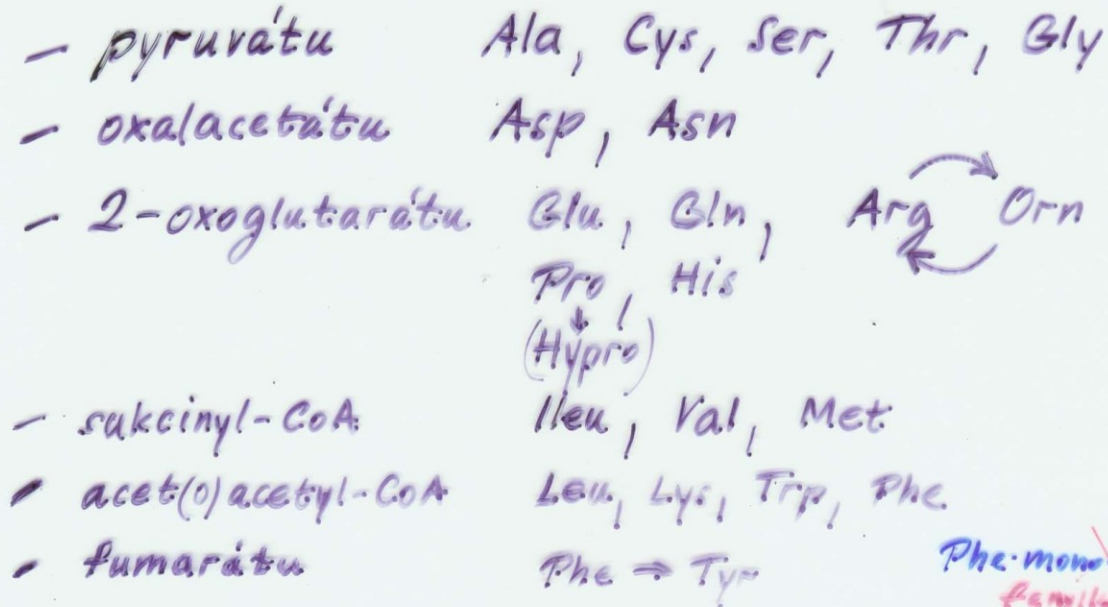 - pyruvátu Ala, Cys, Ser, Thr, Gly
- oxalacetátu Asp, Asn
- 2-oxoglutarátu Glu, Gln, Arg Orn
Pro, His
↓
(Hypro)
- sukcinyl-CoA Ileu, Val, Met
- acet(o)acetyl-CoA Leu, Lys, Trp, Phe
- fumarátu Phe ⇒ Tyr Phe-mono